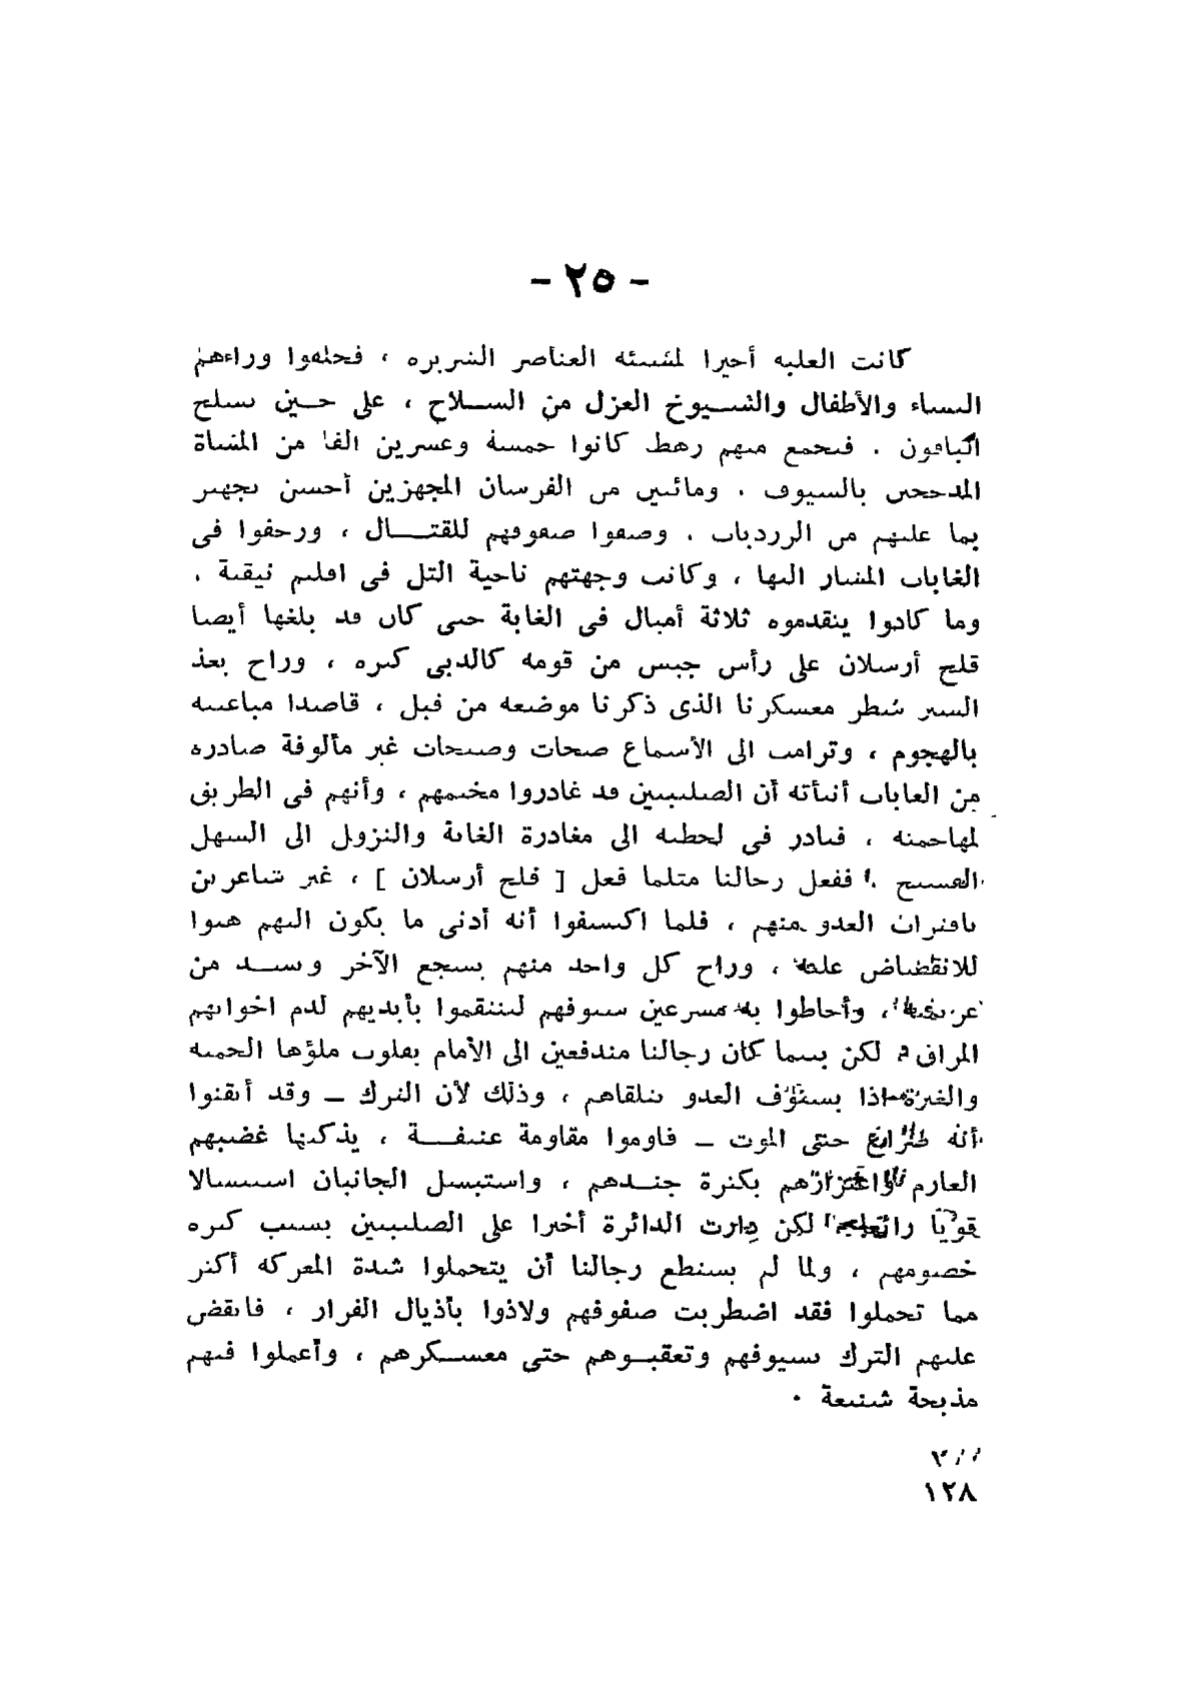 - ٢٥ -
كانت الغلبة أخيرا لمشيئة العناصر الشريرة ، فخلفوا وراءهم
النساء والأطفال والشــيوخ العزل من الســلاح ، على حــين تسلح
الباقون . فتجمع منهم رهط كانوا خمسة وعشرين الفا من المشاة
المدججين بالسيوف . ومائتين من الفرسان المجهزين أحسن تجهيز
بما عليهم من الزرديات . وصفوا صفوفهم للقتــــال ، وزحفوا فى
الغابات المشار اليها ، وكانت وجهتهم ناحية التل فى اقليم نيقية .
وما كادوا يتقدموه ثلاثة أميال فى الغابة حتى كان قد بلغها أيضا
قلج أرسلان على رأس جيش من قومه كالدبى كثرة ، وراح يغذ
السير شطر معسكرنا الذى ذكرنا موضعه من قبل ، قاصدا مباغتته
بالهجوم ، وترامت الى الأسماع صحات وصيحات غير مألوفة صادرة
من الغابات أنبأته أن الصليبيين قد غادروا مخيمهم ، وأنهم فى الطريق
لمهاجمته ، فبادر فى لحظته الى مغادرة الغابة والنزول الى السهل
الفسيح . ففعل رجالنا مثلما فعل [ قلج أرسلان ] ، غير شاعرين
باقتراب العدو منهم ، فلما اكتشفوا أنه أدنى ما يكون اليهم هبوا
للانقضاض عليه ، وراح كل واحد منهم يشجع الآخر ويشــد من
عزيمته ، وأحاطوا به مسرعين بسيوفهم لينتقموا بأيديهم لدم اخوانهم
المراق . لكن بينما كان رجالنا مندفعين الى الأمام بقلوب ملؤها الحمية
والغيرة اذا العدو يتلقاهم ، وذلك لأن الترك – وقد أيقنوا
أنه حتى الموت – قاوموا مقاومة عنيفــــة ، يذكيها غضبهم
العارم واعتزازهم بكثرة جنــدهم ، واستبسل الجانبان استبسالا
قويا رائعا لكن دارت الدائرة أخيرا على الصليبيين بسبب كثرة
خصومهم ، ولما لم يستطع رجالنا أن يتحملوا شدة المعركة أكثر
مما تحملوا فقد اضطربت صفوفهم ولاذوا بأذيال الفرار ، فانقض
عليهم الترك بسيوفهم وتعقبــوهم حتى معســكرهم ، وأعملوا فيهم
مذبحة شنيعة .
١٢٨